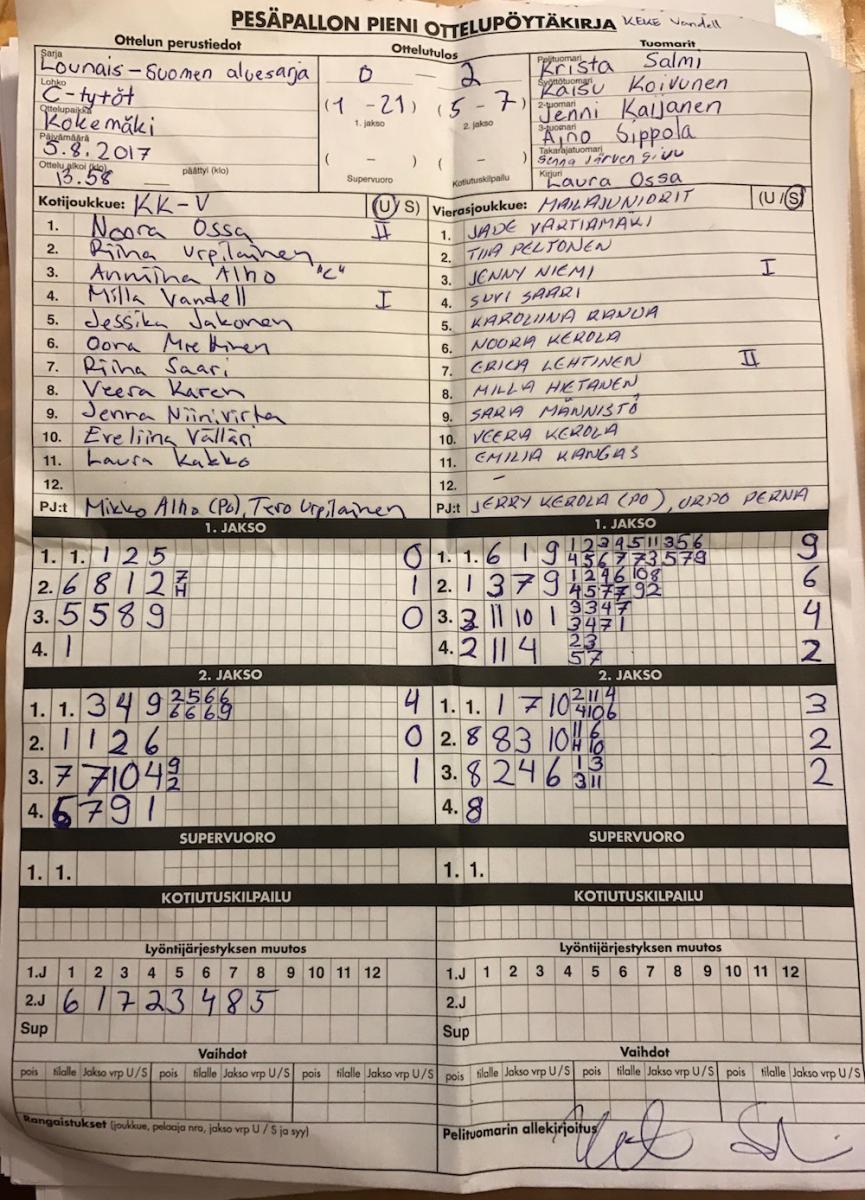 PESÄPALLON PIENI OTTELUPÖYTÄKIRJA KEKE Vandell
Ottelun perustiedot
Sarja
Lounais-Suomen aluesarja
Lohko
C-tytöt
Ottelupaikka
Kokemäki
Päivämäärä
5.8.2017
Ottelu alkoi (klo) päättyi (klo)
13.58
Ottelutulos
0 - 2
(1 - 21) (5 - 7)
1. jakso 2. jakso
( - ) ( - )
Supervuoro Kotiutuskilpailu
Tuomarit
Pelituomari
Krista Salmi
Syöttötuomari
Kaisu Koivunen
2-tuomari
Jenni Kaijanen
3-tuomari
Aino Sippola
Takarajatuomari
Senna Järvensivu
Kirjuri
Laura Ossa
Kotijoukkue: KK-V (U / S)
1. Noora Ossa II
2. Riina Urpilainen
3. Anniina Alho "C"
4. Milla Vandell I
5. Jessika Jakonen
6. Oona Miettinen
7. Riina Saari
8. Veera Karen
9. Jenna Niinivirta
10. Eveliina Välläri
11. Laura Kakko
12.
PJ:t Mikko Alho (PJ), Tero Urpilainen
Vierasjoukkue: MAILAJUNIORIT (U / S)
1. JADE VARTIAMÄKI
2. TIIA PELTONEN
3. JENNY NIEMI I
4. SUVI SAARI
5. KAROLIINA RANUA
6. NOORA KEROLA
7. ERICA LEHTINEN II
8. MILLA HIETANEN
9. SARA MÄNNISTÖ
10. VEERA KEROLA
11. EMILIA KANGAS
12. -
PJ:t JERRY KEROLA (PJ), URPO PERNA
1. JAKSO
1. 1. 1 2 5 0
2. 6 8 1 2 7 H 1
3. 5 5 8 9 0
4. 1
1. JAKSO
1. 1. 6 1 9 1 2 3 4 5 11 3 5 6 9
4 5 6 7 7 3 5 7 9
2. 1 3 7 9 1 2 4 6 10 8 6
4 5 7 7 9 2
3. 3 11 10 1 3 3 4 7 4
3 4 7 1
4. 2 11 4 2 3 2
5 7
2. JAKSO
1. 1. 3 4 9 2 5 6 6 4
6 6 6 9
2. 1 1 2 6 0
3. 7 7 10 4 9 1
2
4. 6 7 9 1
2. JAKSO
1. 1. 1 7 10 2 11 4 3
4 10 6
2. 8 8 3 10 11 6 2
H 10
3. 8 2 4 6 1 3 2
3 11
4. 8
SUPERVUORO
1. 1.
SUPERVUORO
1. 1.
KOTIUTUSKILPAILU
KOTIUTUSKILPAILU
Lyöntijärjestyksen muutos
1.J 1 2 3 4 5 6 7 8 9 10 11 12
2.J 6 1 7 2 3 4 8 5
Sup
Lyöntijärjestyksen muutos
1.J 1 2 3 4 5 6 7 8 9 10 11 12
2.J
Sup
Vaihdot
pois tilalle Jakso vrp U/S pois tilalle Jakso vrp U/S pois tilalle Jakso vrp U/S
Vaihdot
pois tilalle Jakso vrp U/S pois tilalle Jakso vrp U/S pois tilalle Jakso vrp U/S
Rangaistukset (joukkue, pelaaja nro, jakso vrp U / S ja syy)
Pelituomarin allekirjoitus